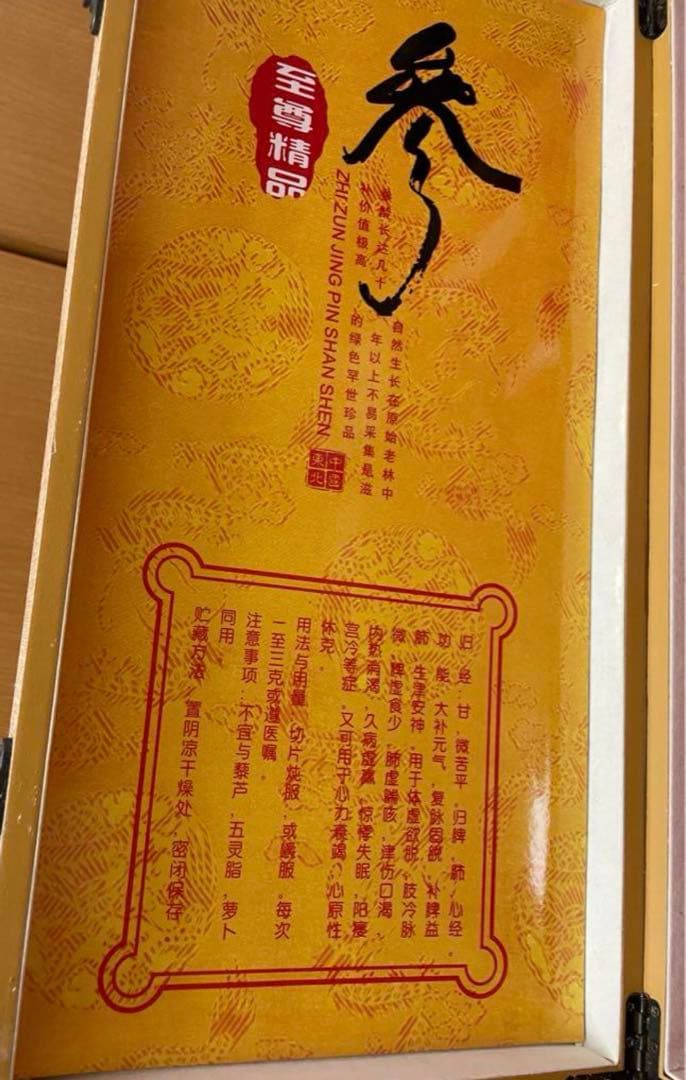 参
至尊精品
ZHI ZUN JING PIN SHAN SHEN
自然生长在原始老林中
参龄长达几十年以上不易采集是滋
补价值极高的绿色罕世珍品
中國
東北
归 经:甘,微苦平,归脾,肺,心经。
功 能:大补元气,复脉固脱,补脾益
肺,生津安神,用于体虚欲脱,肢冷脉
微,脾虚食少,肺虚喘咳,津伤口渴,
内热消渴,久病虚羸,惊悸失眠,阳痿
宫冷等症,又可用于心力衰竭,心原性
休克。
用法与用量:切片炖服,或嚼服。每次
一至三克或遵医嘱。
注意事项:不宜与藜芦,五灵脂,萝卜
同用
贮藏方法:置阴凉干燥处,密闭保存